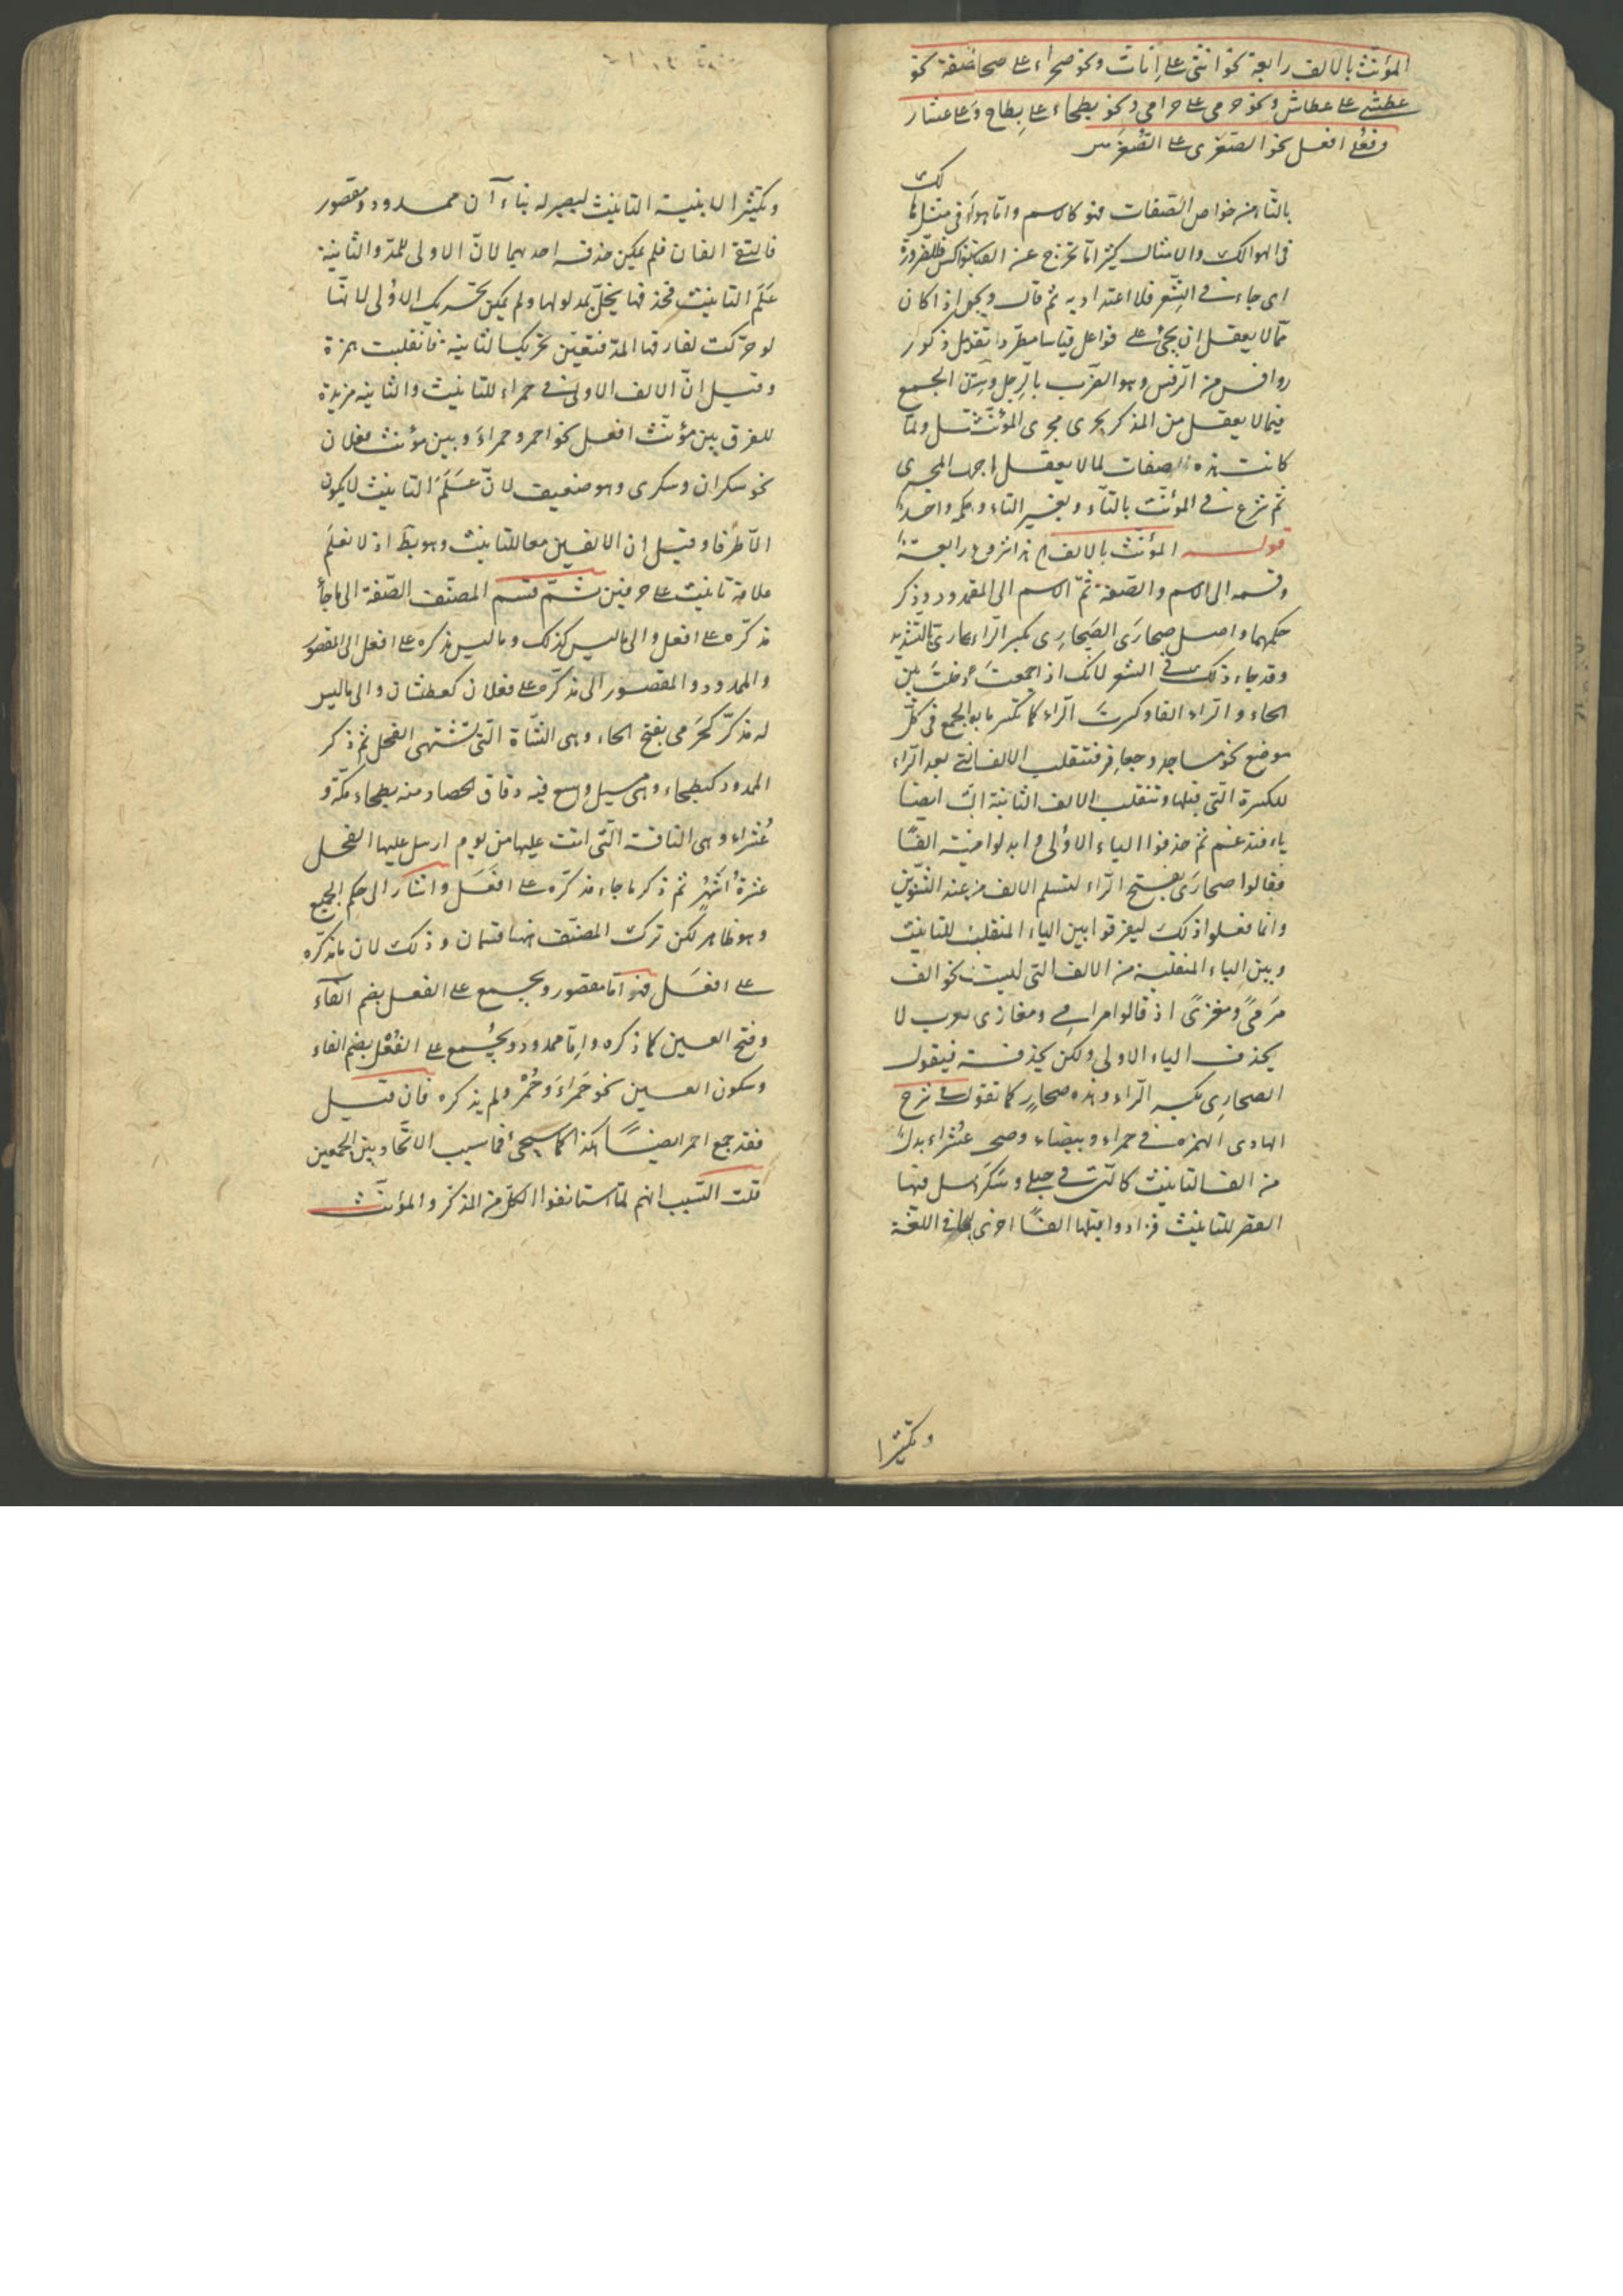 المؤنث بالالف رابعة نحو انثى على اناث ونحو صحراء على صحا الصفة نحو
عطشى على عطاش ونحو حرمى على حرامى ونحو بطحاء على بطاح وعلى عشار
وفعلى افعل نحو الصغرى على الصغر
بالتاء من خواص الصفات فهو كالاسم واما هوالك فى مثل هالك
فى الهوالك والامثال كثيرا ما تخرج عن القياس فللضرورة
اى جاءت فى الشعر فلا اعتداد به ثم قال ويجوز اذا كان
مما لا يعقل ان يجئ على فواعل قياسا مطردا تقول ذكور
روافس من الرفس وهو الضرب بالرجل الجمع
فيما لا يعقل من المذكر يجرى مجرى المؤنث ولما
كانت هذه الصفات لما لا يعقل اجريت المجرى
ثم شرع فى المؤنث بالتاء وبغير التاء وحكمه واحد
قوله المؤنث بالالف هذا شروع رابعة
وقسمه الى الاسم والصفة ثم الاسم الى المقصور وذكر
حكمهما واصل صحارى الصحارى بكسر الراء صحارى بالتشديد
وقد جاء ذلك فى الشعر لانك اذا جمعت ادخلت بين
الحاء والراء الفا وكسرت الراء كما تكسر ما بعد الجمع فى كل
موضع نحو مساجد وجعافر فتنقلب الالف التى بعد الراء
للكسرة التى قبلها وتنقلب الالف الثانية ايضا
ياء فتدغم ثم حذفوا الياء الاولى وابدلوا من الفا
فقالوا صحارى بفتح الراء لتسلم الالف من عند التنوين
وانما فعلوا ذلك ليفرقوا بين الياء المنقلبة للتانيث
وبين الياء المنقلبة من الالف التى ليست نحو الف
مرمى ومغزى اذ قالوا مرامى ومغازى العرب لا
يحذف الياء الاولى ولكن يحذف فيقول
الصحارى بكسر الراء وهذه صحار كما تقول فى شرح
الهادى الهمزة فى حمراء وبيضاء وصح عشراء بدل
من الف التانيث كالتى فى حبلى وسكرى فيها
القصر للتانيث فزادوا قبلها الفا اخرى فى اللغة
وتكثيرا
وتكثيرا لابنية التانيث ليصير له بناء آن ممدود ومقصور
فالتقى الفان فلم يمكن حذف احديهما لان الاولى للمد والثانية
علم التانيث فحذفها يخل بمدلولها ولم يمكن تحريك الاولى لانها
لو حركت لفارقها المد فتعين تحريك الثانية فانقلبت همزة
وقيل ان الالف الاولى فى حمراء للتانيث والثانية مزيدة
للفرق بين مؤنث افعل نحو احمر وحمراء وبين مؤنث فعلان
نحو سكران وسكرى وهو ضعيف لان علم التانيث لا يكون
الا طرفا وقيل ان الالفين معا للتانيث وهو بط اذ لا نعلم
علامة تانيث على حرفين ثم قسم المصنف الصفة الى ما جاء
مذكره على افعل والى ما ليس كذلك وما ليس مذكره على افعل الى المقصور
والممدود والمقصور الى مذكره على فعلان كعطشان والى ما ليس
له مذكر كحرمى بفتح الحاء وهى الشاة التى تشتهى الفحل ثم ذكر
الممدود كبطحاء وهى مسيل واسع فيه دقاق الحصاد منه بطحاء مكة و
عشراء وهى الناقة التى اتت عليها من يوم ارسل عليها الفحل
عشرة اشهر ثم ذكر ما جاء مذكره على افعل واشار الى حكم الجمع
وهو ظاهر لكن ترك المصنف ههنا قسمان وذلك لان ما مذكره
على افعل فهو اما مقصور ويجمع على الفعل بضم الفاء
وفتح العين كما ذكره واما ممدود ويجمع على الفعل بضم الفاء
وسكون العين نحو حمراء وحمر ولم يذكره فان قيل
فقد جمع احمر ايضا هكذا كما سيجئ فما سبب الاتحاد بين الجمعين
قلت السبب انهم لما استانفوا الكل من المذكر والمؤنث